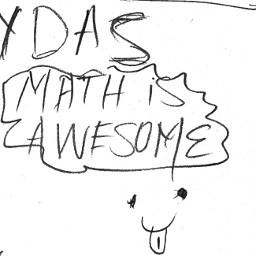 YDAS
MATH iS
AWESOME